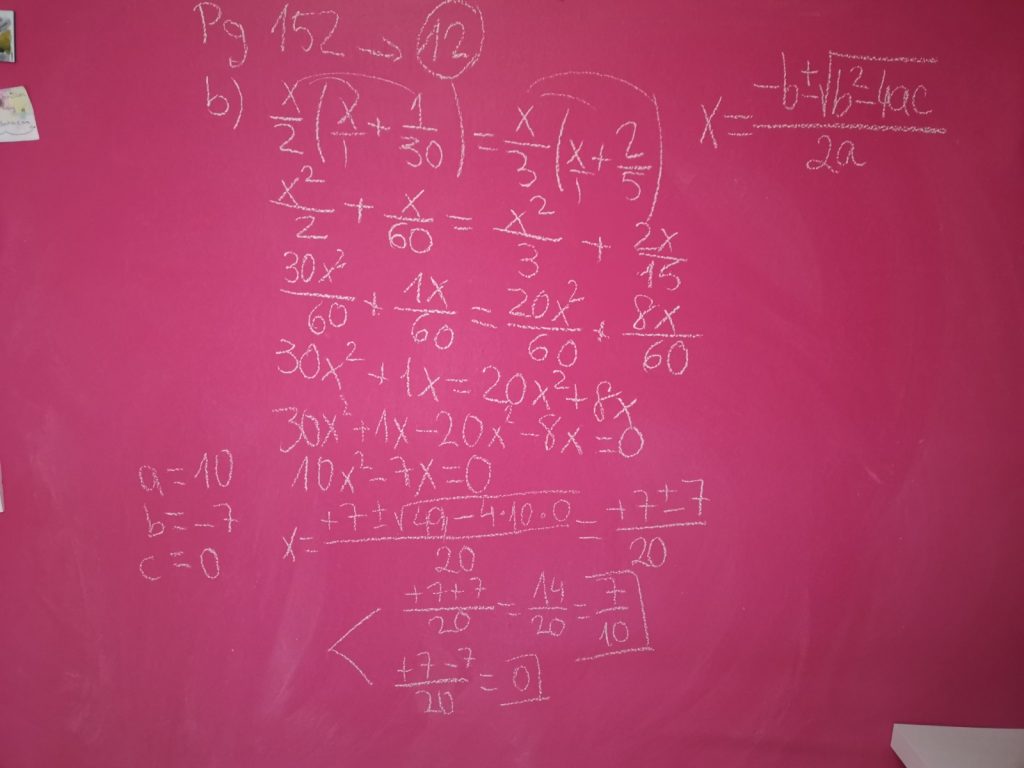 Pg 152 → 12
b) x/2 (x/1 + 1/30) = x/3 (x/1 + 2/5)
x = (-b ± √(b² - 4ac))/2a
x²/2 + x/60 = x²/3 + 2x/15
30x²/60 + 1x/60 = 20x²/60 + 8x/60
30x² + 1x = 20x² + 8x
30x² + 1x - 20x² - 8x = 0
10x² - 7x = 0
a = 10
b = -7
c = 0
x = (+7 ± √(49 - 4·10·0))/20 = (+7 ± 7)/20
(+7+7)/20 = 14/20 = 7/10
(+7-7)/20 = 0